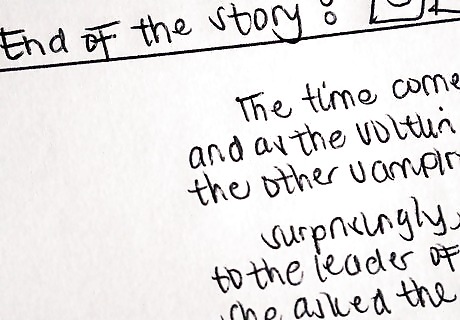 End of the story :
The time come
and as the voltur
the other vampir
surprisingly,
to the leader of
she asked the